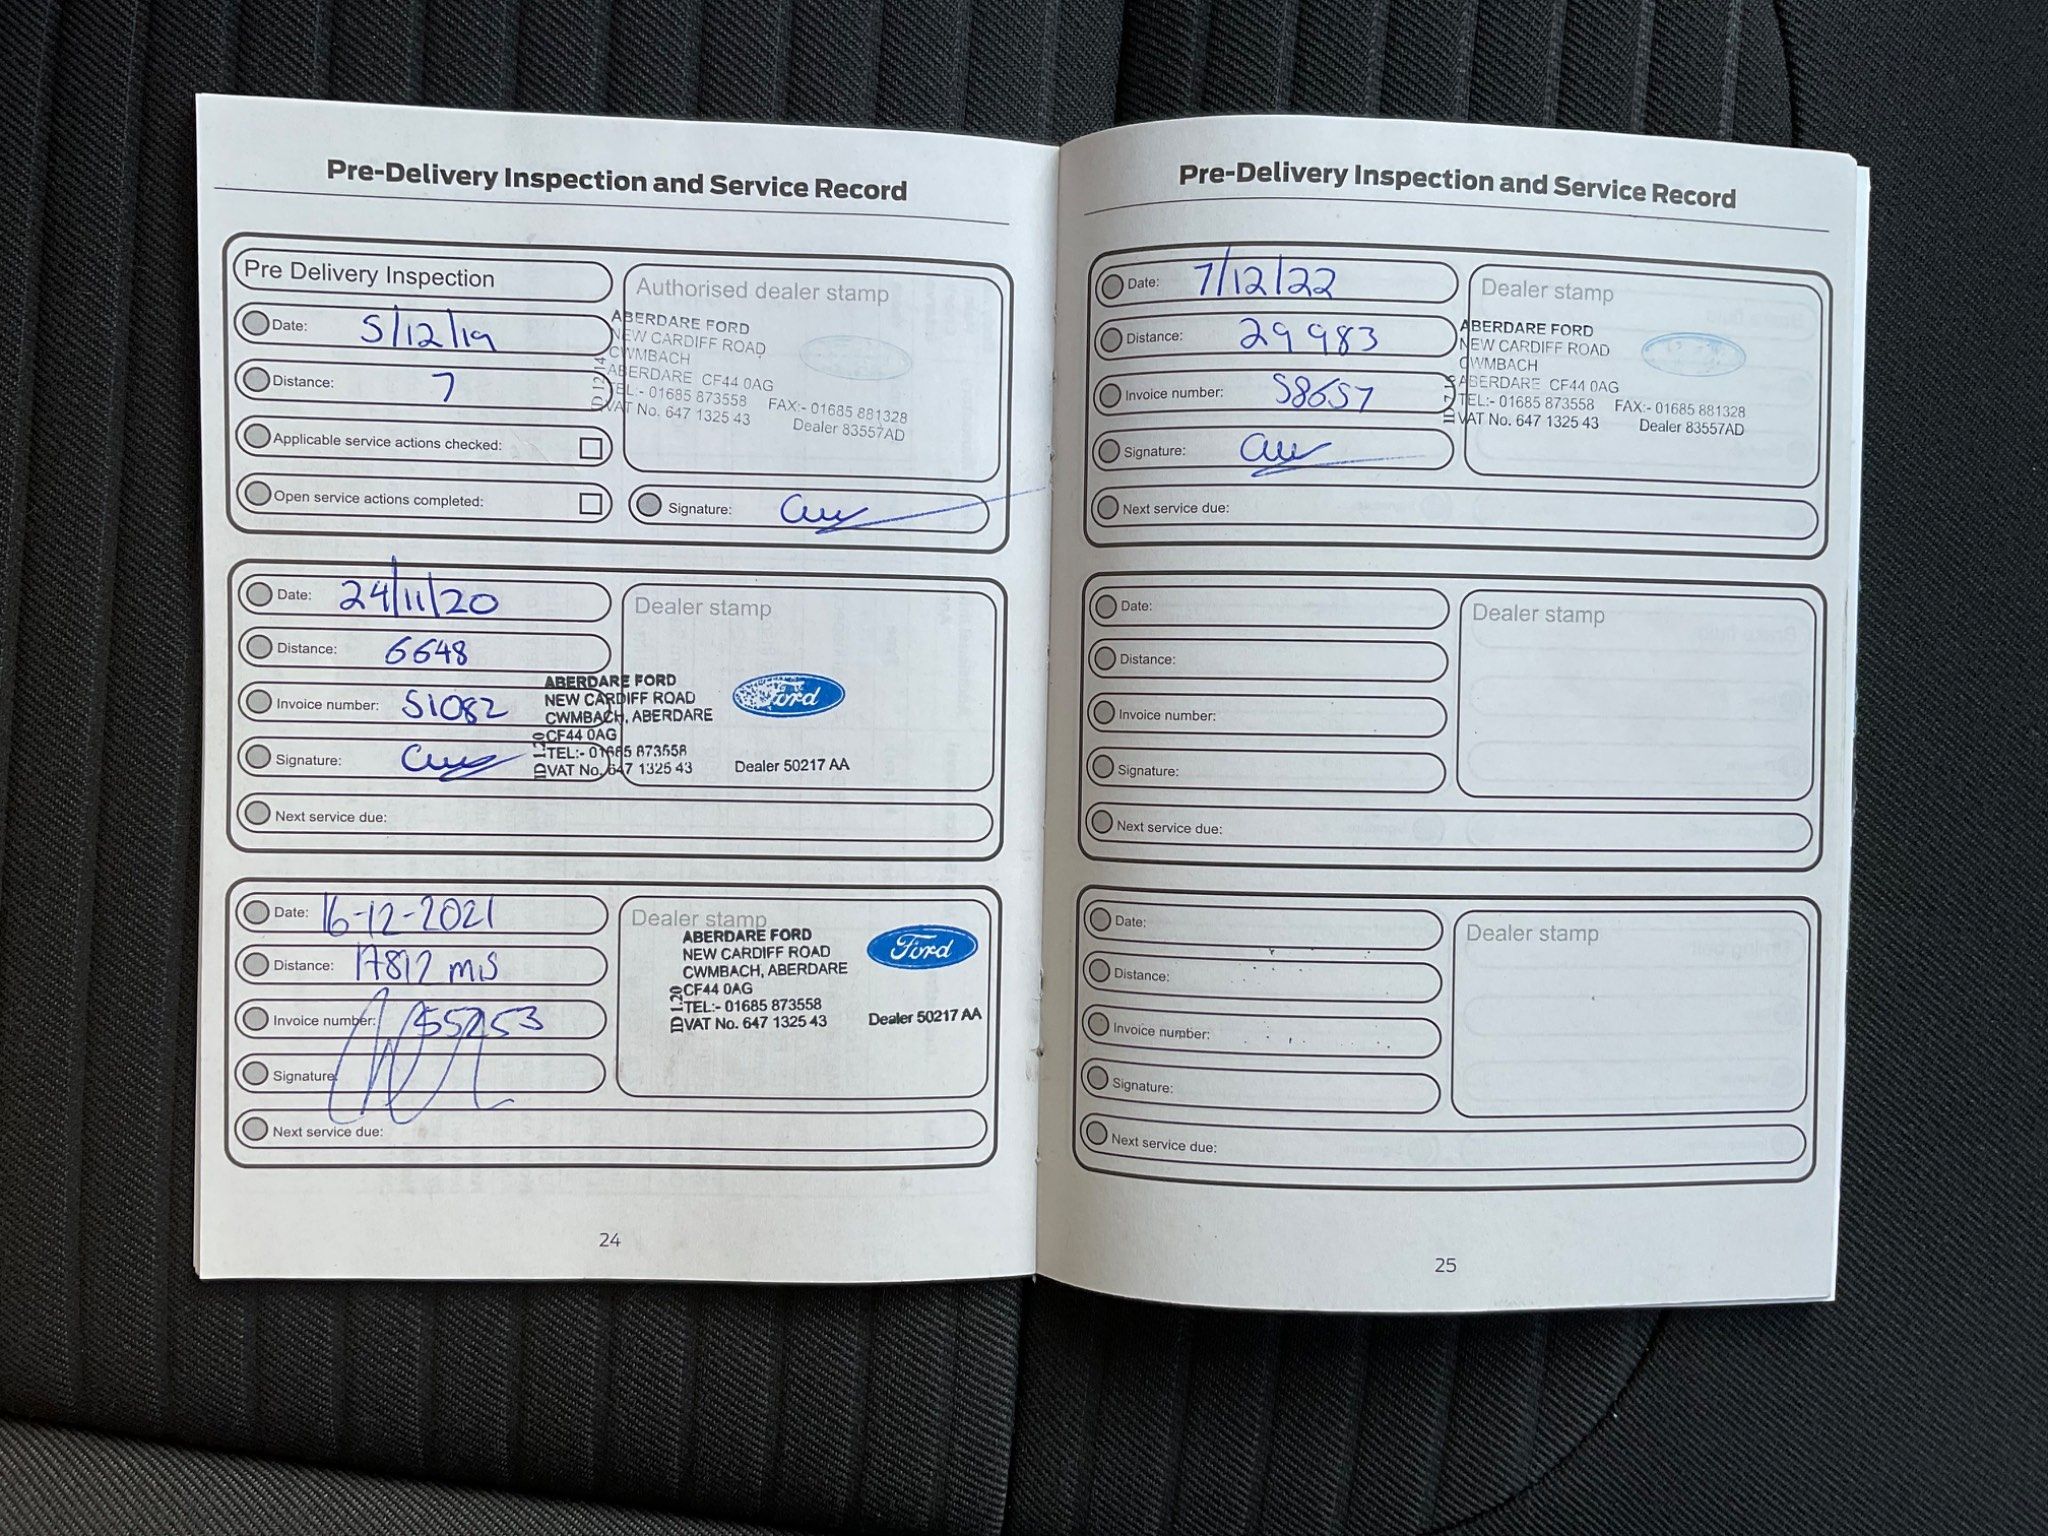 Pre-Delivery Inspection and Service Record
Pre Delivery Inspection
Date: 5/12/19
Distance: 7
Applicable service actions checked:
Open service actions completed:
Authorised dealer stamp
ABERDARE FORD
NEW CARDIFF ROAD
CWMBACH
ABERDARE CF44 0AG
TEL:- 01685 873558 FAX:- 01685 881328
VAT No. 647 1325 43 Dealer 83557AD
ID 12 14
Signature:
Date: 24/11/20
Distance: 6648
Invoice number: 51082
Signature:
Next service due:
Dealer stamp
ABERDARE FORD
NEW CARDIFF ROAD
CWMBACH, ABERDARE
CF44 0AG
TEL:- 01685 873558
VAT No. 647 1325 43 Dealer 50217 AA
ID 1 20
Ford
Date: 16-12-2021
Distance: 17812 mis
Invoice number: 55253
Signature:
Next service due:
Dealer stamp
ABERDARE FORD
NEW CARDIFF ROAD
CWMBACH, ABERDARE
CF44 0AG
TEL:- 01685 873558
VAT No. 647 1325 43 Dealer 50217 AA
ID 1 20
Ford
24
Pre-Delivery Inspection and Service Record
Date: 7/12/22
Distance: 29983
Invoice number: 58657
Signature:
Next service due:
Dealer stamp
ABERDARE FORD
NEW CARDIFF ROAD
CWMBACH
ABERDARE CF44 0AG
TEL:- 01685 873558 FAX:- 01685 881328
VAT No. 647 1325 43 Dealer 83557AD
Date:
Distance:
Invoice number:
Signature:
Next service due:
Dealer stamp
Date:
Distance:
Invoice number:
Signature:
Next service due:
Dealer stamp
25